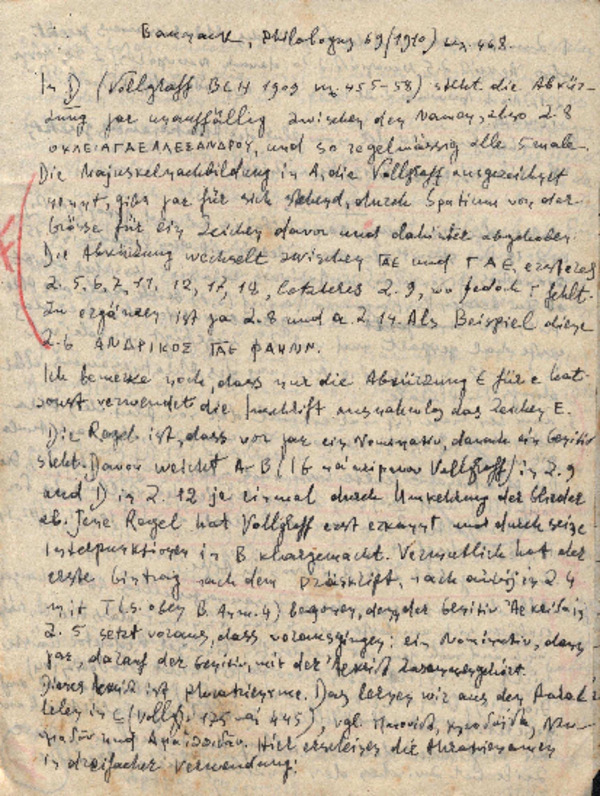 Baunack, Philologus 69 (1910) 468.
In D (Vollgraff BCH 1909 455-58) steht die Abkür-
zung γαε unauffällig zwischen den Namen, also Z. 8
ΟΚΛΕΙΑΓΑΕΛΛΕΞΑΝΔΡΟΥ, und so regelmässig alle 5 male.
Die Majuskelnachbildung in A, die Vollgraff ausgezeichnet
nennt, gibt γαε für sich stehend, durch Spatium von der
Grösse für ein Zeichen davor und dahinter abgehoben.
Die Abkürzung wechselt zwischen ΓΑΕ und Γ Α Ε, ersteres
Z. 5. 6. 7. 11. 12, 17, 18, letzteres Z. 9, wo jedoch Γ fehlt.
Zu ergänzen ist γα Z. 8 und α Z. 14. Als Beispiel diene
Z. 6 ΑΝΔΡΙΚΟΣ ΓΑΕ ΦΑΗΝΝ.
Ich bemerke noch, dass nur die Abkürzung Є für ε hat
sonst verwendet die Inschrift ausnahmslos das Zeichen Ε.
Die Regel ist, dass vor γαε ein Nominativ, danach ein Genitiv
steht. Davon weicht A B (16 Vollgraff) in Z. 9
und D in Z. 12 je einmal durch Umkehrung der Glieder
ab. Jene Regel hat Vollgraff erst erkannt und durch seine
Interpunktionen in B klargemacht. Vermutlich hat der
erste Eintrag nach dem Präskript, nach in Z. 4
mit (s. oben B. Anm. 4) begonnen, denn der Genitiv
Z. 5 setzt voraus, dass vorausgingen: ein Nominativ, dann
γαε, darauf der Genitiv, mit der zusammengehört.
Dieses ist Phratrienname. Das lernen wir aus den Paral-
lelen in C (Vollgr. 175 445), vgl.
und Hier erscheinen die Phratriennamen
in dreifacher Verwendung: